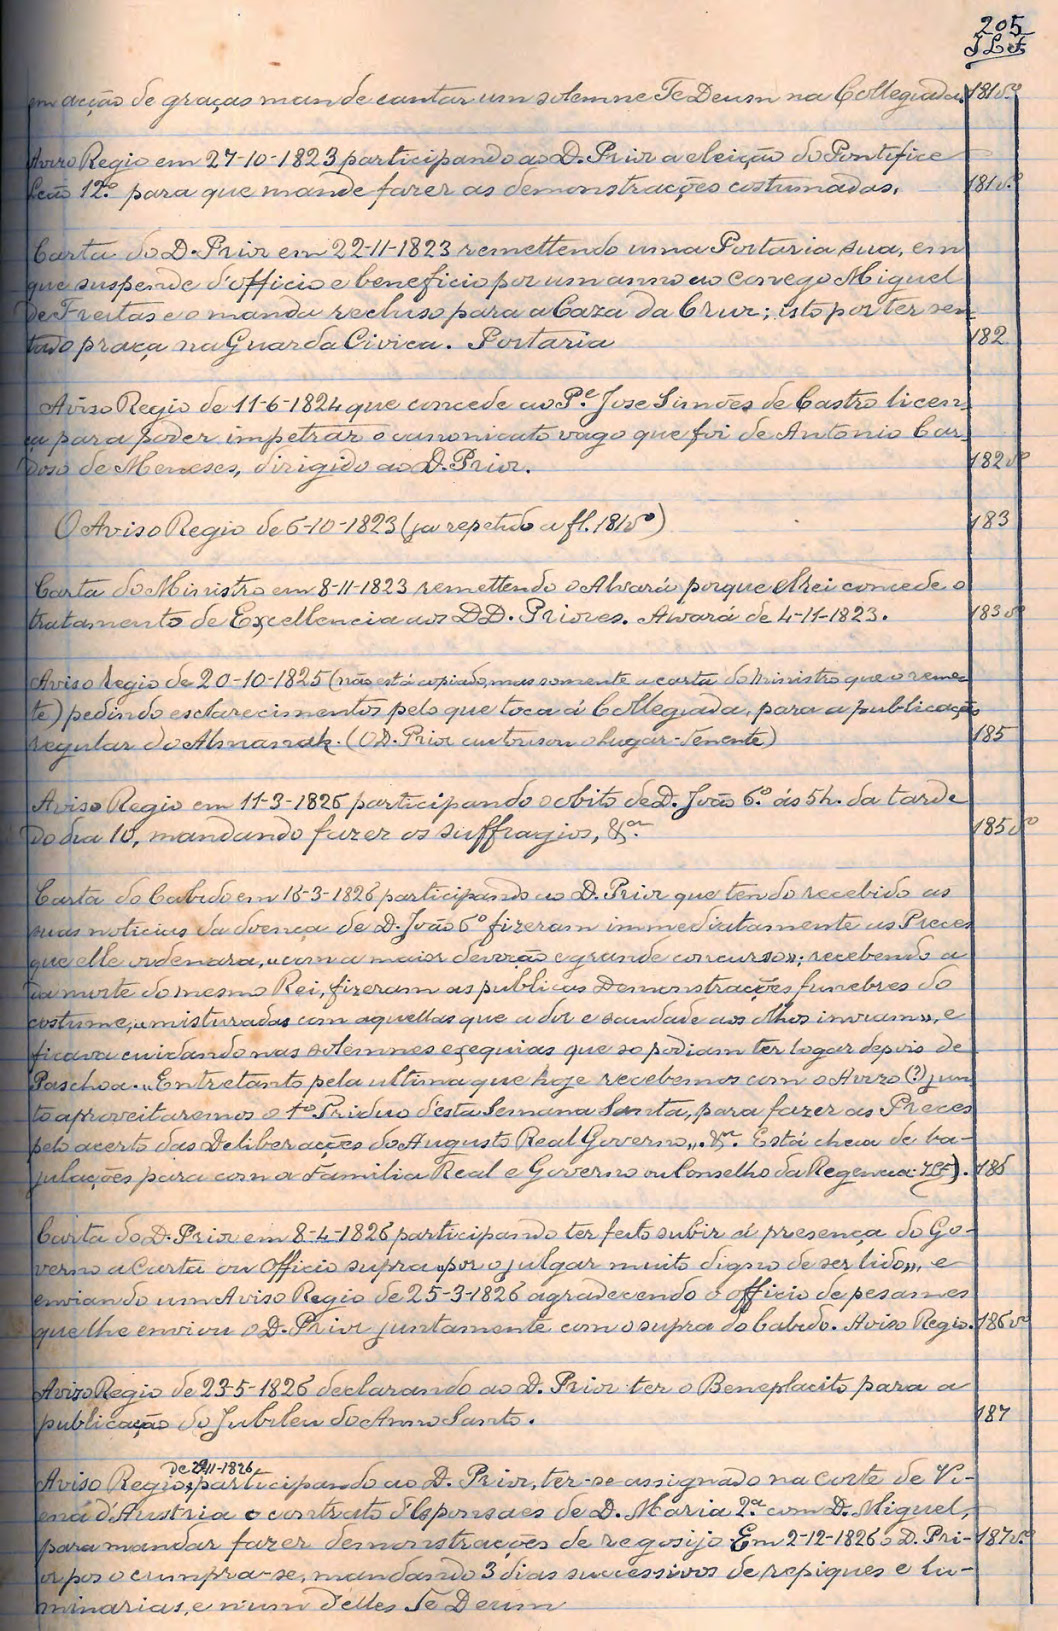 205
J L et
em acção de graças mande cantar um solemne Te Deum na Collegiada. 181vº
Aviso Regio em 27-10-1823 participando ao D. Prior a eleição do Pontifice
Leão 12.º para que mande fazer as demonstracções costumadas. 181vº
Carta do D. Prior em 22-11-1823 remettendo uma Portaria sua, em
que suspende d'officio e beneficio por um anno ao conego Miguel
de Freitas e o manda recluso para a Caza da Cruz; isto por ter sen-
tado praça na Guarda Civica. Portaria 182
Aviso Regio de 11-6-1824 que concede ao P.e Jose Simões de Castro licen-
ça para poder impetrar o canonicato vago que foi de Antonio Car-
doso de Meneses, dirigido ao D. Prior. 182vº
O Aviso Regio de 6-10-1823 (ja repetido a fl. 181vº) 183
Carta do Ministro em 8-11-1823 remettendo o Alvará porque elrei concede o
tratamento de Excellencia aos DD. Priores. Alvará de 4-11-1823. 183vº
Aviso Regio de 20-10-1825 (não está copiado, mas somente a carta do Ministro que o reme-
te) pedindo esclarecimentos pelo que toca á Collegiada, para a publicação
regular do Almanak. (O D. Prior cutorisou o lugar-tenente) 185
Aviso Regio em 11-3-1826 participando o obito de D. João 6.º ás 5h. da tarde
do dia 10, mandando fazer os suffragios, &.ª 185vº
Carta do Cabido em 16-3-1826 participando ao D. Prior que tendo recebido as
suas noticias da doença de D. João 6º fizeram immediatamente as Preces
que elle ordenara, «com a maior devoção e grande concurso»; recebendo a
da morte do mesmo Rei, fizeram as publicas Demonstracções funebres do
costume, «misturadas com aquellas que a dor e saudade aos olhos inviam», e
ficava cuidando nas solemnes exequias que so podiam ter logar depois de
Paschoa. «Entretanto pela ultima que hoje recebemos com o Avizo (?) jun-
to aproveitaremos o 1º Triduo d'esta Semana Santa, para fazer as Preces
pelo acerto das Deliberacções do Augusto Real Governo», &ª. Está cheia de ba-
julações para com a Familia Real e Governo ou Conselho da Regencia. JLF). 186
Carta do D. Prior em 8-4-1826 participando ter feito subir á presença do Go-
verno a Carta ou Officio supra «por o julgar muito digno de ser lido», e
enviando um Aviso Regio de 25-3-1826 agradecendo o officio de pesames
que lhe enviou o D. Prior juntamente com o supra do Cabido. Aviso Regio. 186vº
Avizo Regio de 23-5-1826 declarando ao D. Prior ter o Beneplacito para a
publicação do Jubileu do Anno Santo. 187
de 29-11-1826
Aviso Regio, participando ao D. Prior, ter-se assignado na corte de Vi-
ena d'Austria o contrato d'Esponsaes de D. Maria 2.ª com D. Miguel,
para mandar fazer demonstracções de regosijo. Em 2-12-1826 o D. Pri- 187vº
or pos o cumpra-se, mandando 3 dias successivos de repiques e lu-
minarias, e n'um d'elles Te Deum